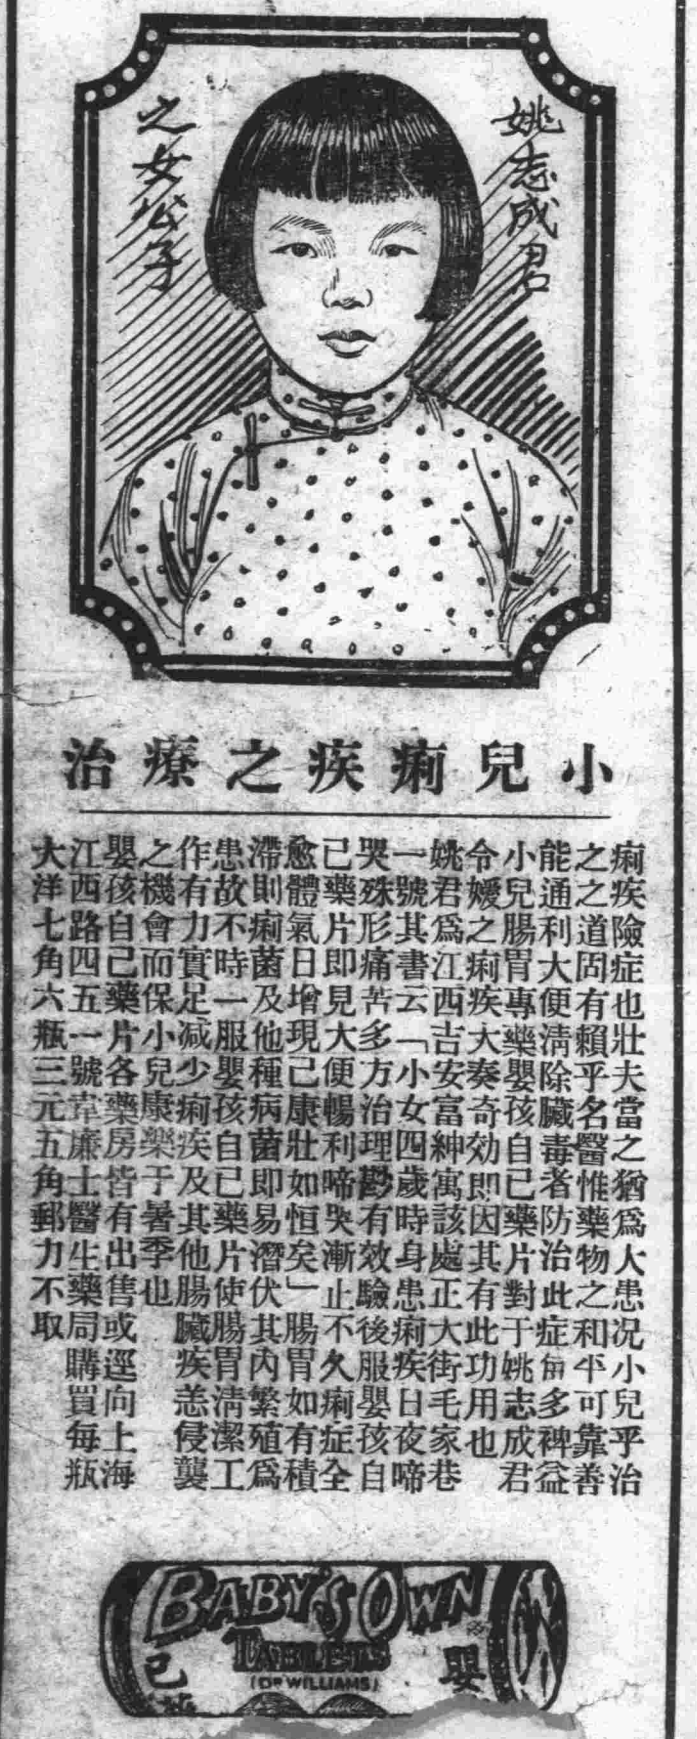 姚志成君
之女公子
小兒痢疾之療治
痢疾險症也壯夫當之猶爲大患况小兒乎治
之之道固有賴乎名醫惟藥物之和平可靠善
能通利大便淸除臟毒者防治此症多裨益
小兒腸胃專藥嬰孩自己藥片對于姚志成君
令嬡之痢疾大奏奇効即因其有此功用也
姚君爲江西吉安富紳寓該處正大街毛家巷
一號其書云「小女四歲時身患痢疾日夜啼
哭殊形痛苦多方治理有效驗後服嬰孩自
已藥片即見大便暢利啼哭漸止不久痢症全
愈體氣日增現已康壯如恒矣」腸胃如有積
滯則痢菌及他種病菌即易潛伏其內繁殖爲
患故不時一服嬰孩自已藥片使腸胃淸潔工
作有力實足减少痢疾及其他腸臟疾恙侵襲
之機會而保小兒康樂于暑季也
嬰孩自己藥片各藥房皆有出售或逕向上海
江西路四五一號韋廉士醫生藥局購買每瓶
大洋七角六瓶三元五角郵力不取
BABY'S OWN
TABLETS
(DR WILLIAMS)
嬰
己